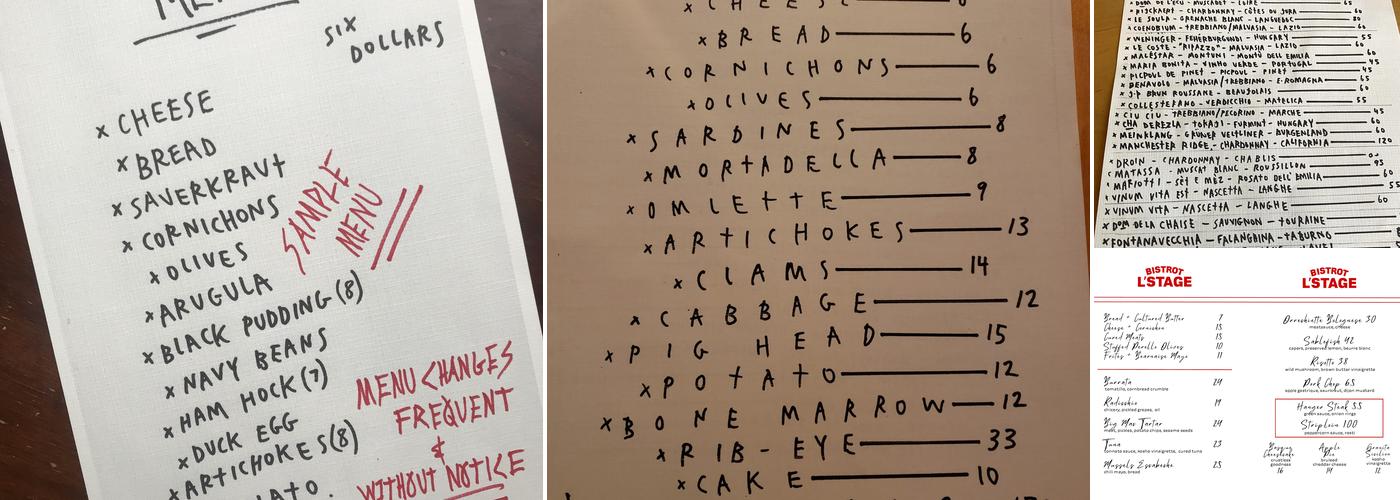 SIX
DOLLARS
× CHEESE
× BREAD
× SAVERKRAUT
× CORNICHONS
× OLIVES
× ARUGULA
× BLACK PUDDING (8)
× NAVY BEANS
× HAM HOCK (7)
× DUCK EGG
× ARTICHOKES (8)
SAMPLE
MENU
MENU CHANGES
FREQUENT
&
WITHOUT NOTICE
× BREAD 6
× CORNICHONS 6
× OLIVES 6
× SARDINES 8
× MORTADELLA 8
× OMLETTE 9
× ARTICHOKES 13
× CLAMS 14
× CABBAGE 12
× PIG HEAD 15
× POTATO 12
× BONE MARROW 12
× RIB-EYE 33
× CAKE 10
× LE SOULA - GRENACHE BLANC - LANGUEDOC 80
× COENOBIUM - TREBBIANO/MALVASIA - LAZIO 60
× WENINGER - FEHÉRBURGUNDI - HUNGARY 55
× LE COSTE - "RIPAZZO" - MALVASIA - LAZIO 60
× MALËSTAR - MONTUNI - MONTÙ DELL EMILIA
× MARIA BONITA - VINHO VERDE - PORTUGAL 45
× PICPOUL DE PINET - PICPOUL - PINET 45
× DENAVOLO - MALVASIA/TREBBIANO - E. ROMAGNA 65
× J.P BRUN ROUSSANE - BEAUJOLAIS 60
× COLLESTEFANO - VERDICCHIO - MATELICA 55
× CIU CIU - TREBBIANO/PECORINO - MARCHE 45
× CHA DEREZLA - TOKAJI - FURMINT - HUNGARY 60
× MEINKLANG - GRÜNER VELTLINER - BURGENLAND 60
× MANCHESTER RIDGE - CHARDONNAY - CALIFORNIA 120
× DROIN - CHARDONNAY - CHABLIS
× MATASSA - MUSCAT BLANC - ROUSSILLON 95
× MARIOTTI - SÈT E MÈZ - ROSATO DELL EMILIA 60
× VINUM VITA EST - NASCETTA - LANGHE 55
× VINUM VITA - NASCETTA - LANGHE 60
× DOM DE LA CHAISE - SAUVIGNON - TOURAINE
× FONTANAVECCHIA - FALANGHINA - TABURNO
BISTROT
L'STAGE
Bread + Cultured Butter 7
Cheese + Cornichon 18
Cured Meats 18
Stuffed Perello Olives 10
Frites + Bearnaise Mayo 11
Burrata 24
tomatillo, cornbread crumble
Radicchio 19
chicory, pickled grapes, oil
Big Mac Tartar 24
meat, pickles, potato chips, sesame seeds
Tuna 23
tonnato sauce, kosho vinaigrette, cured tuna
Mussels Escabeche 25
chili mayo, bread
BISTROT
L'STAGE
Orrechiette Bolognese 30
meatsauce, cheese
Sablefish 42
capers, preserved lemon, beurre blanc
Risotto 38
wild mushroom, brown butter vinaigrette
Pork Chop 65
apple gastrique, saurkraut, dijon mustard
Hanger Steak 55
green sauce, onion rings
Striploin 100
peppercorn sauce, rosti
Basque
Cheesecake
crustless
goodness
16
Apple
Pie
bruleed
cheddar cheese
14
Granita
Siciliana
kosho
vinaigrette
12